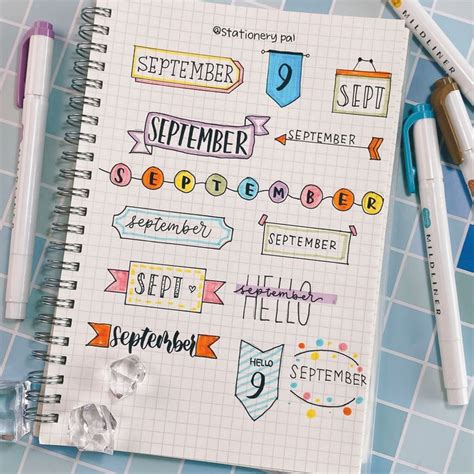 @stationery pal
SEPTEMBER
9
SEPT
SEPTEMBER
SEPTEMBER
SEPTEMBER
september
SEPTEMBER
SEPT
HELLO
september
september
HELLO
9
SEPTEMBER
MILDLINER
MILDLINER